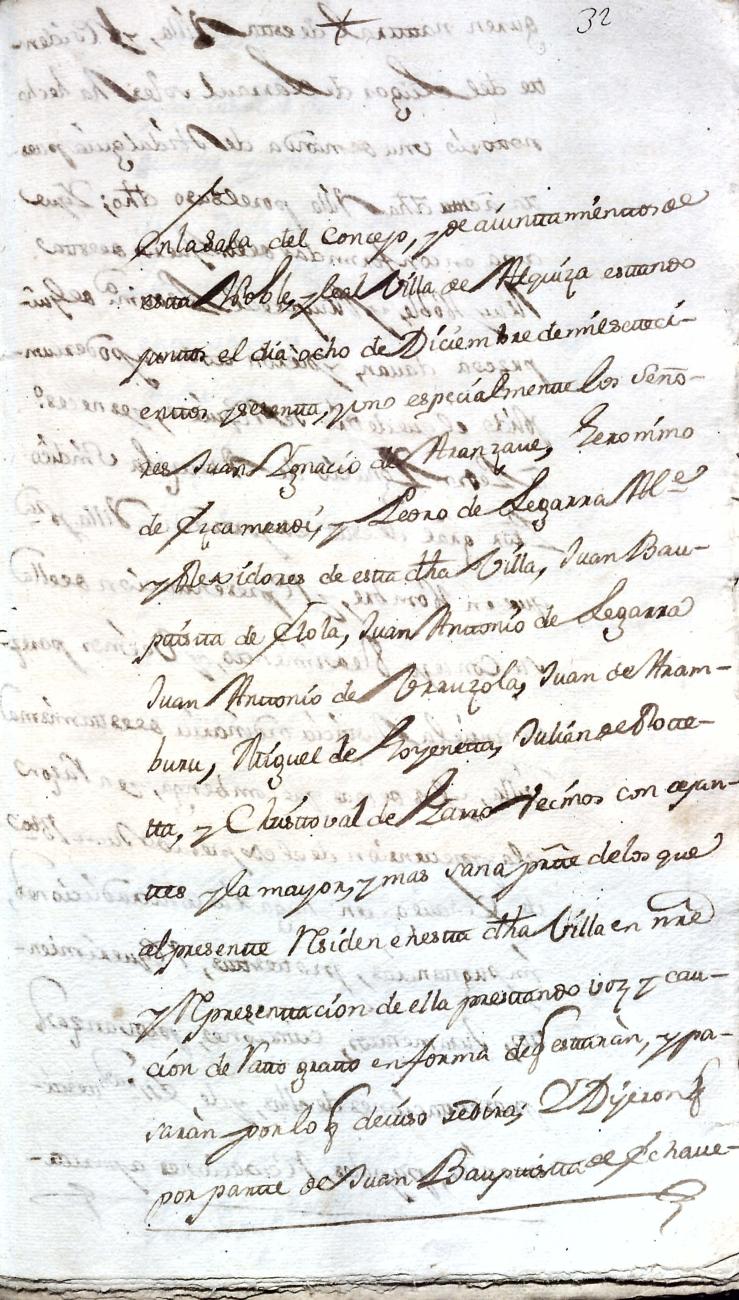 32
En la Sala del Concejo, y de aiuntamienttos de
esta Noble, y leal Villa de Alquiza estando
junttos el dia ocho de Diciembre de mil setteci-
enttos y sesentta, y uno especialmente los Seño-
res Juan Ygnacio de Aranzave, Geronimo
de Eizamendi, y Pedro de Legarra Alc.e
y Rexidores de esta dha Villa, Juan Bau-
ptista de Elola, Juan Anttonio de Legarra
Juan Anttonio de Vrruzola, Juan de Aram-
buru, Miguel de Goyenetta, Julian de Otte-
tta, y Christtoval de Yarza Vecinos concejan-
ttes y la mayor, y mas sana partte delos que
al presentte Residen en esta dha Villa en nre
y Representtacion de ella presttando voz y cau-
cion de ratto gratto en forma de q esttaràn, y pa-
saràn por lo q de iuso se dira; Y Dijeron q
por partte de Juan Bauptistta de Echave-